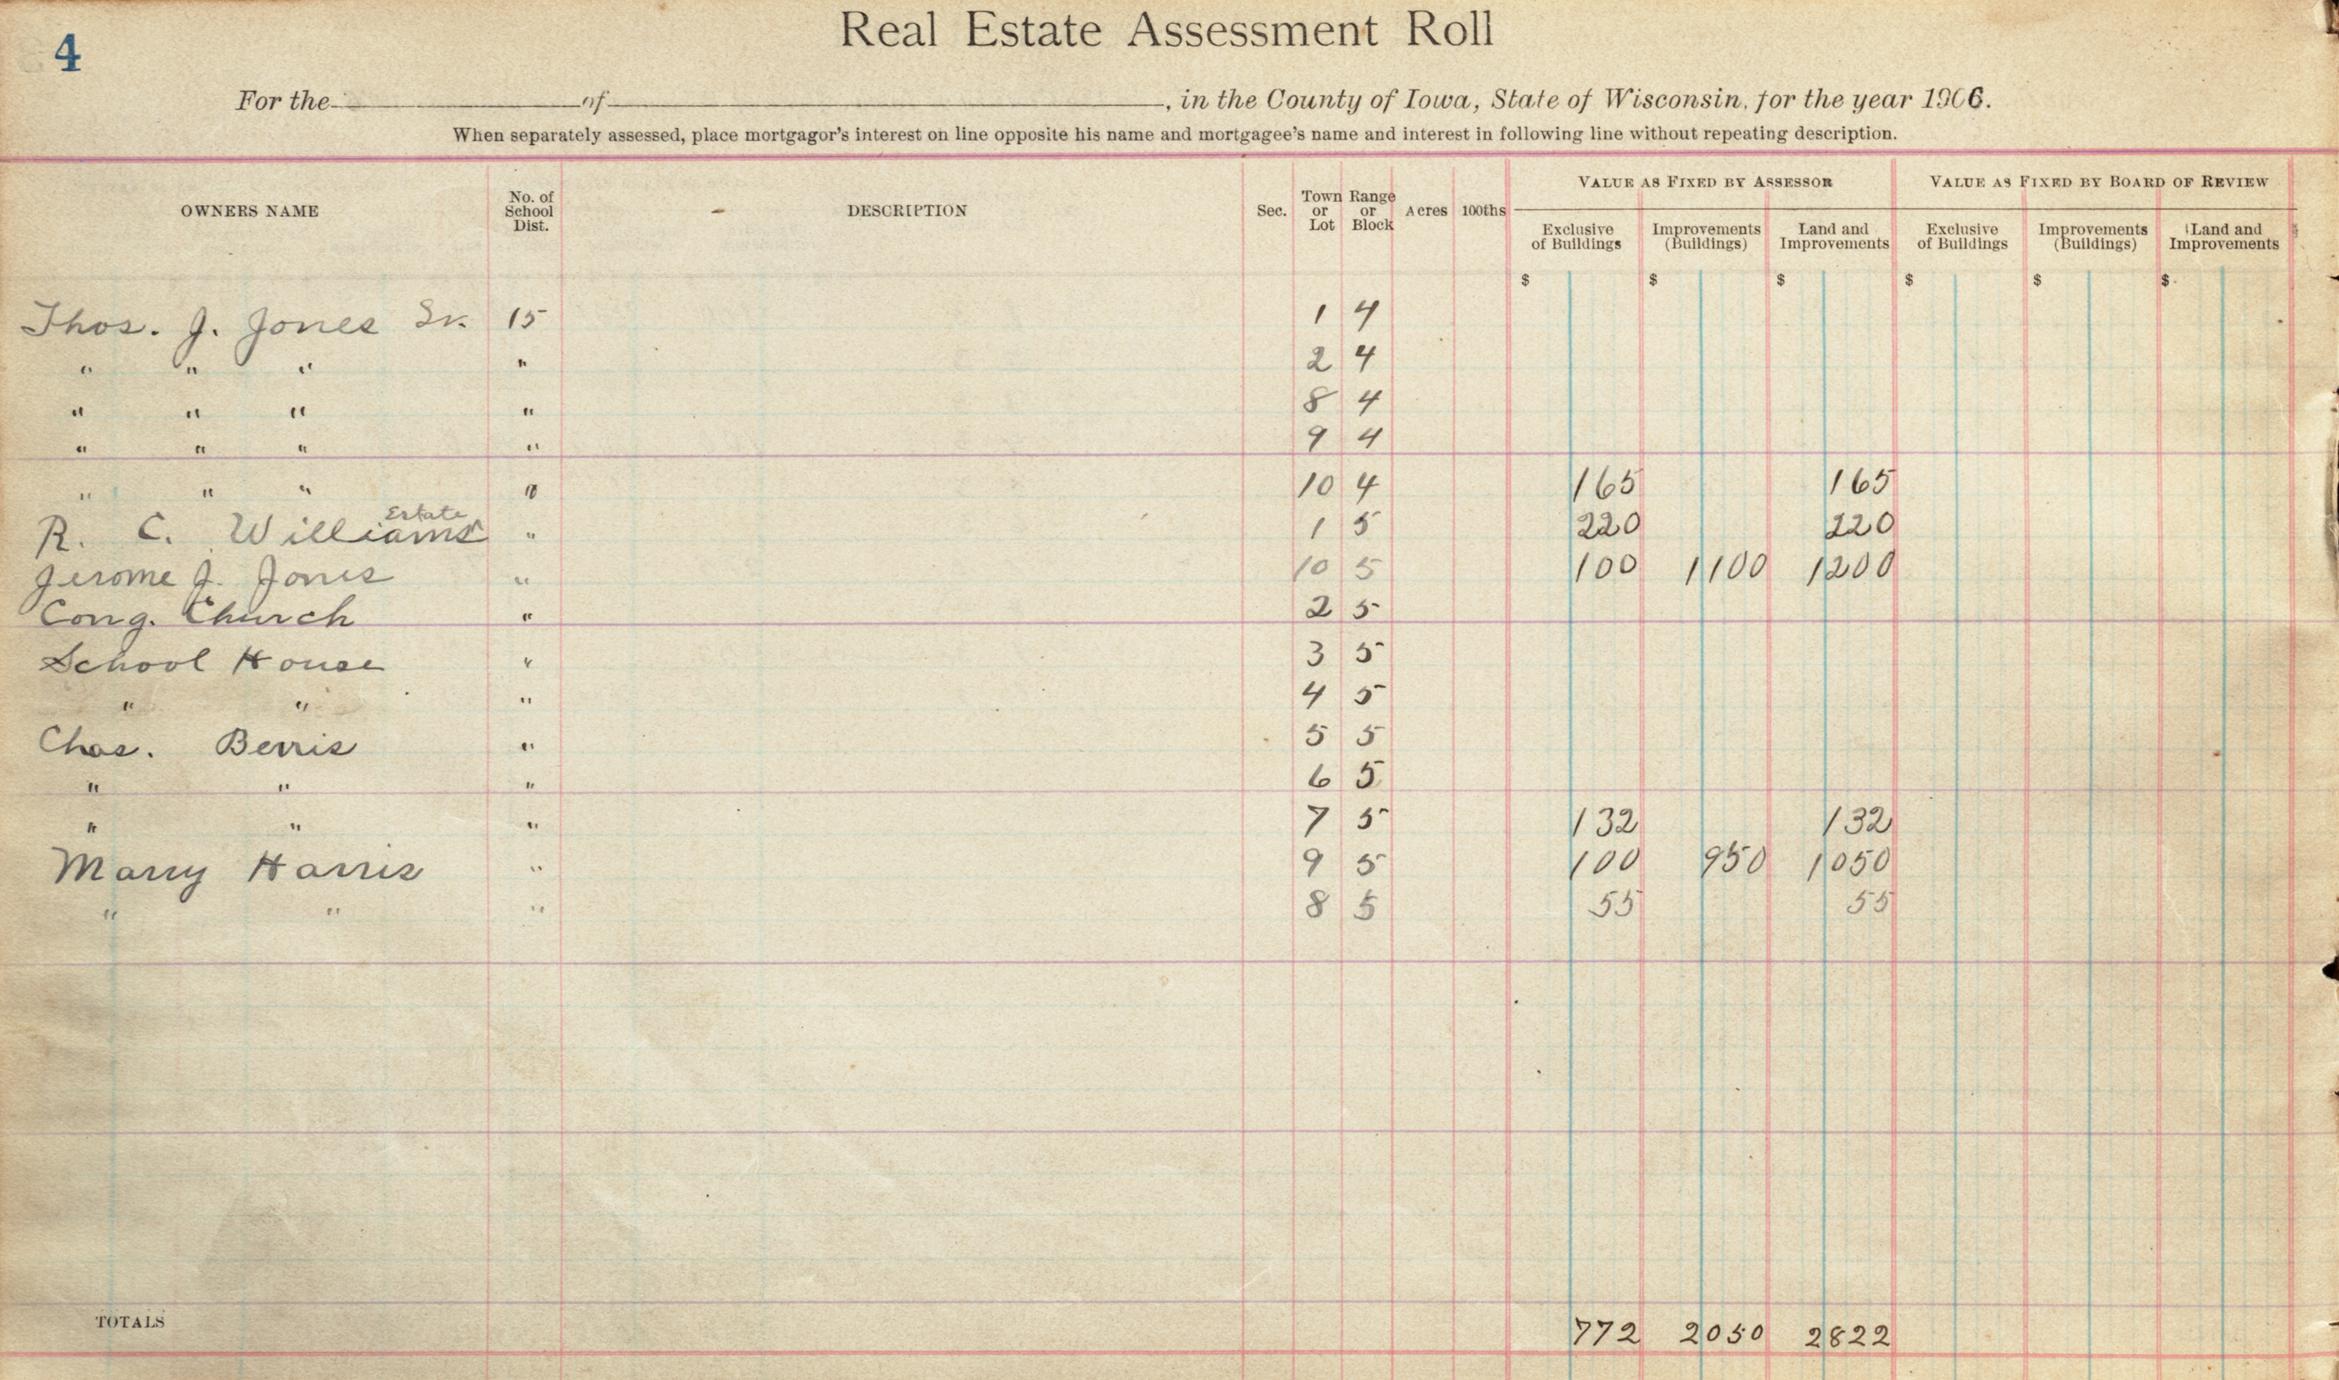 4
Real Estate Assessment Roll
For the of , in the County of Iowa, State of Wisconsin, for the year 1906.
When separately assessed, place mortgagor's interest on line opposite his name and mortgagee's name and interest in following line without repeating description.
VALUE AS FIXED BY ASSESSOR VALUE AS FIXED BY BOARD OF REVIEW
OWNERS NAME No. of School Dist. DESCRIPTION Sec. Town or Lot Range or Block Acres 100ths Exclusive of Buildings Improvements (Buildings) Land and Improvements Exclusive of Buildings Improvements (Buildings) Land and Improvements
$ $ $ $ $ $
Thos. J. Jones Sr. 15 1 4
" " " " 2 4
" " " " 8 4
" " " " 9 4
" " " " 10 4 165 165
R. C. Williams Estate " 1 5 220 220
Jerome J. Jones " 10 5 100 1100 1200
Cong. Church " 2 5
School House " 3 5
" " " 4 5
Chas. Berris " 5 5
" " " 6 5
" " " 7 5 132 132
Marry Harris " 9 5 100 950 1050
" " " 8 5 55 55
TOTALS 772 2050 2822